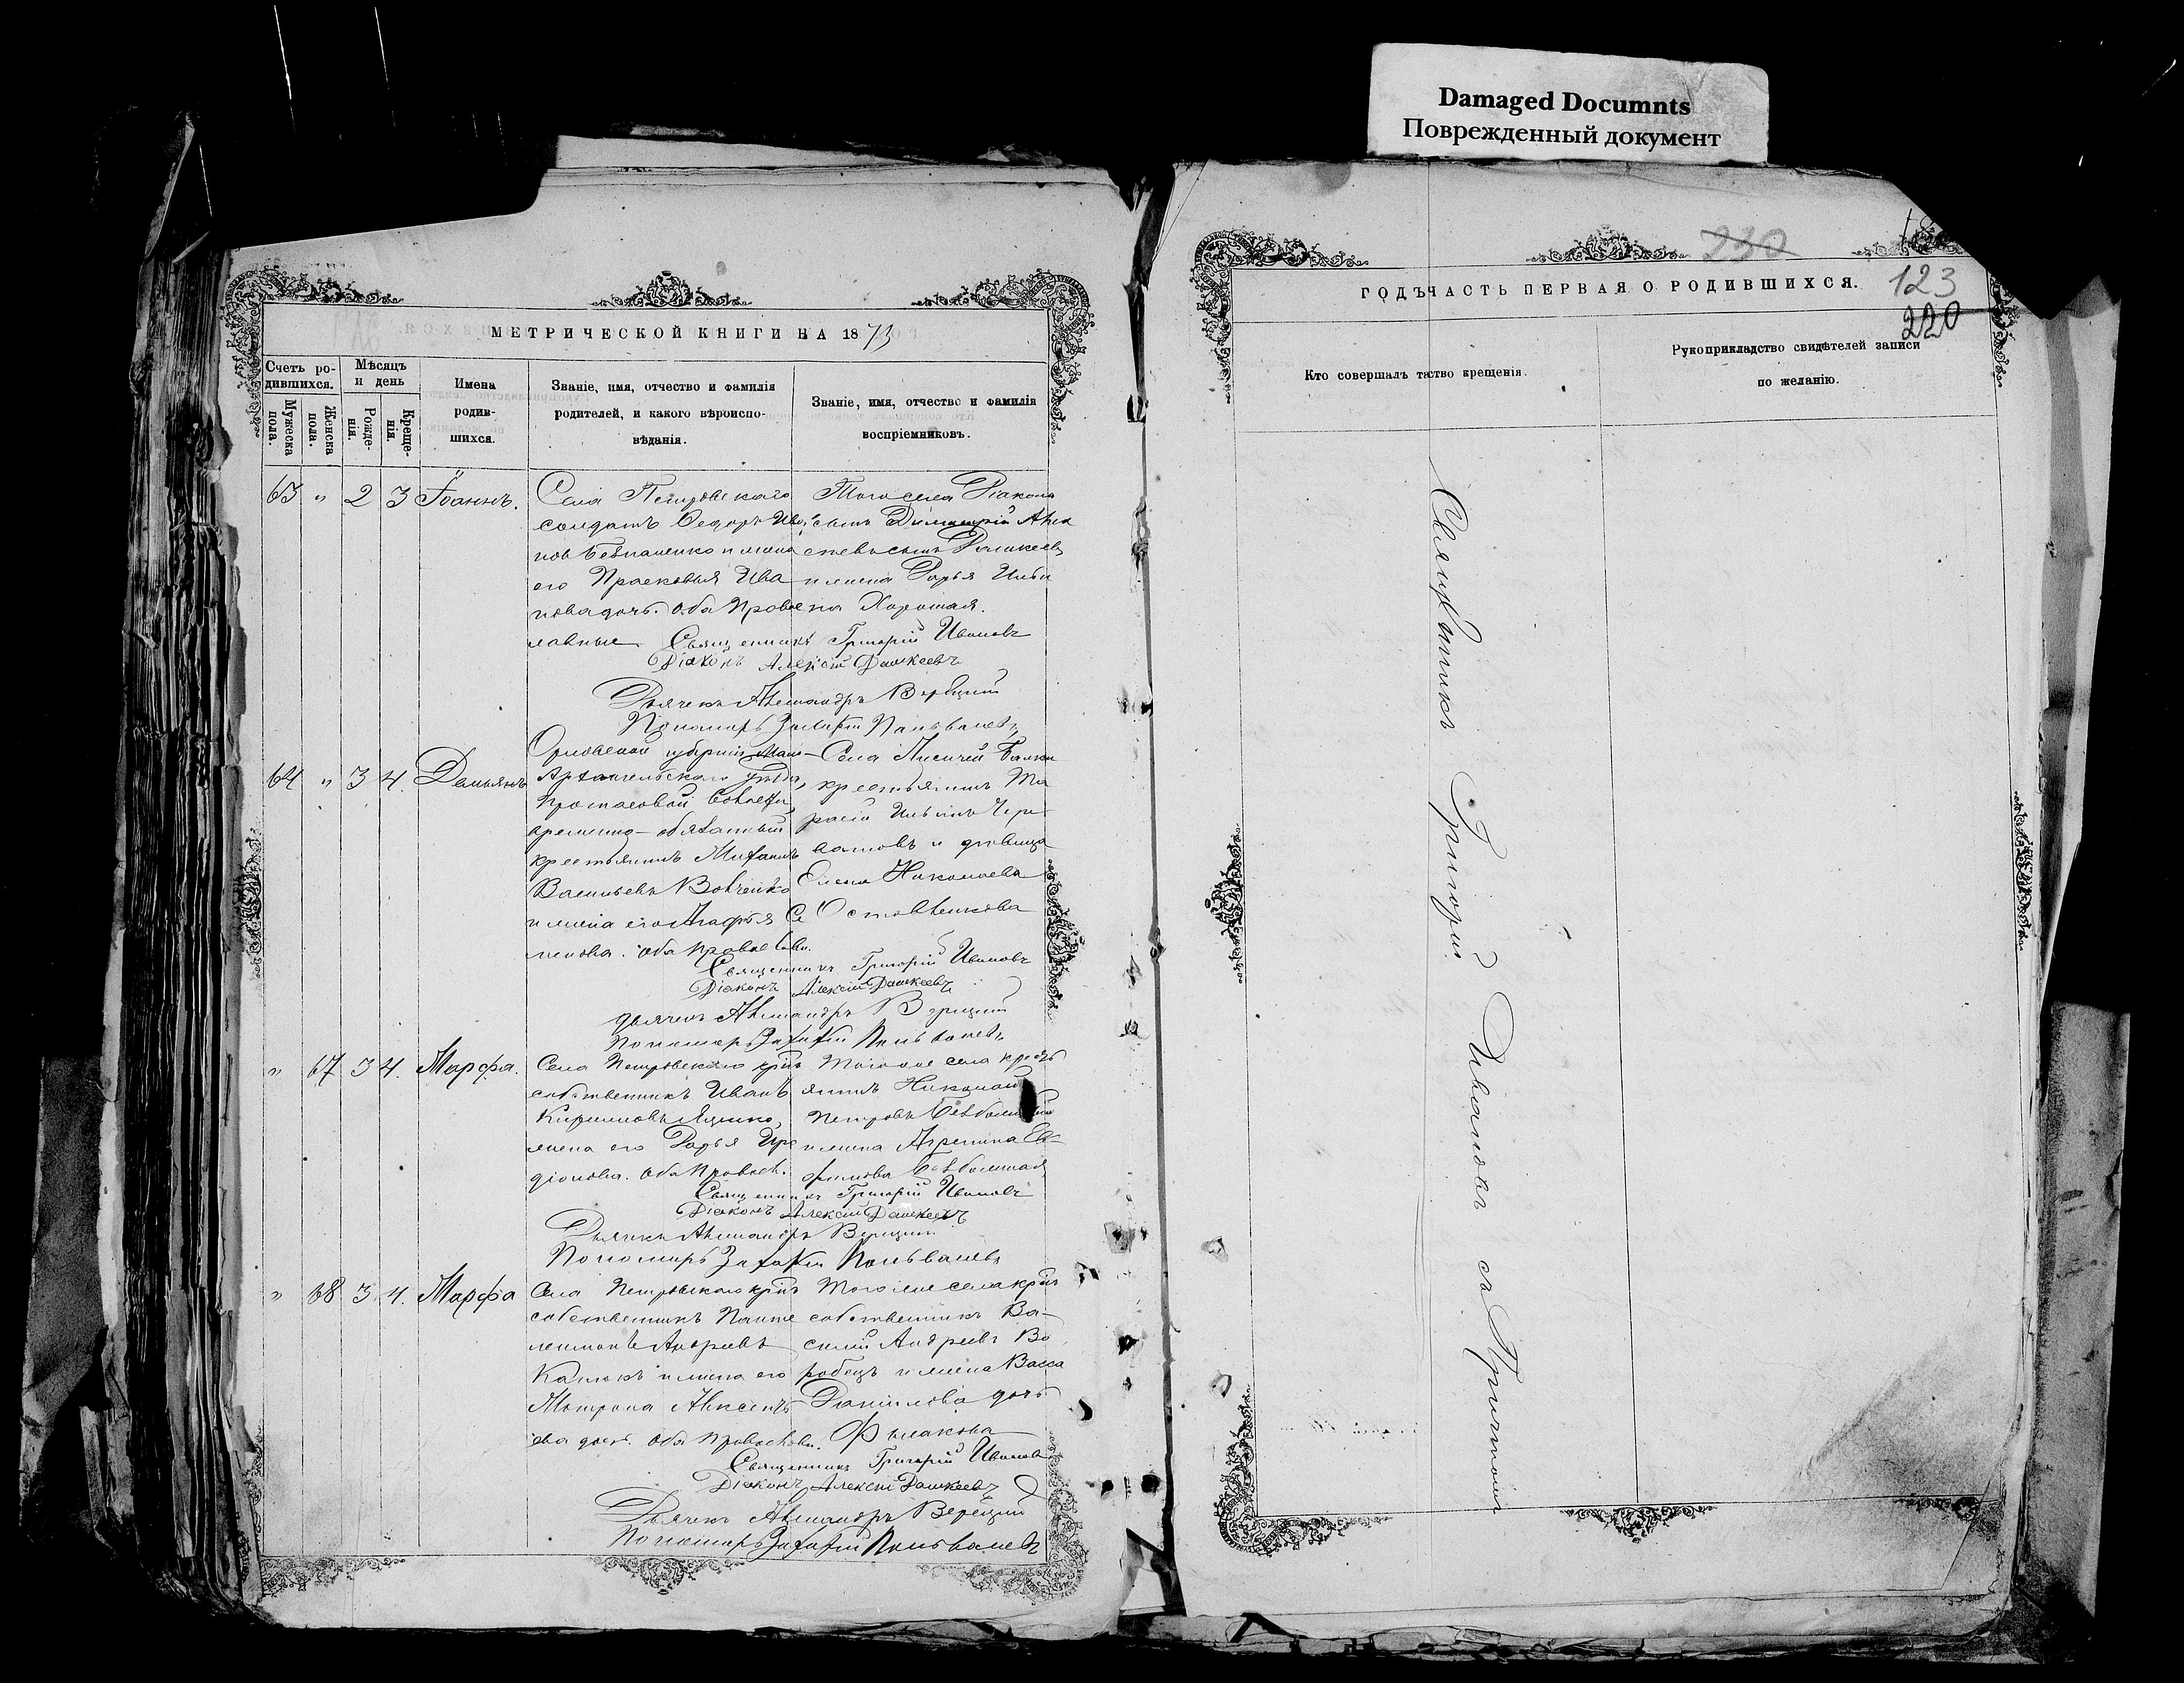 Damaged Documnts
Поврежденный документ
МЕТРИЧЕСКОЙ КНИГИ НА 1873
Счетъ ро-
дившихся.
Мужеска
пола.
Женска
пола.
Мѣсяцъ
и день
Рожде-
нія.
Креще-
нія.
Имена
родив-
шихся.
Званіе, имя, отчество и фамилія
родителей, и какого вѣроиспо-
вѣданія.
Званіе, имя, отчество и фамилія
воспріемниковъ.
63 " 2 3 Іоаннъ.
Села Петровскаго
солдатъ Ѳедоръ Ива
новъ и жена
его Прасковья Ива
нова дочь. Оба Правос
лавные
Того села Діакона
сынъ Димитрій Алек
сѣевъ сынъ Дашкеевъ
и жена Дарья Ильи
на Хорошая.
Священникъ Григорій Ивановъ
Діаконъ Алексій Дашкеевъ
Дьячекъ Александръ Верецкій
Пономарь Захарій
64 " 3 4. Демьянъ
Орловской губерніи Мало-
Архангельскаго уѣзда,
временно-обязанный
крестьянинъ Михаилъ
Васильевъ
и жена его Агафья Се
менова. Оба Правосл.
Села Лисичей Балки
крестьянинъ Та
расій Ильинъ Чере-
ватовъ и дѣвица
Елена Николаева
Священникъ Григорій Ивановъ
Діаконъ Алексій Дашкеевъ
Дьячекъ Александръ Верецкій
Пономарь Захарій
" 67 3 4. Марфа.
Села Петровскаго крѣн
собственникъ Иванъ
Кирилловъ Яценко,
жена его Дарья
Оба Правосл.
Того же села крест
янинъ Николай
Петровъ
и жена Агрепина Ев-
фимова
Священникъ Григорій Ивановъ
Діаконъ Алексій Дашкеевъ
Дьячекъ Александръ Верецкій
Пономарь Захарій
" 68 3 4. Марфа
Села Петровскаго крѣн
собственникъ Панте
леимонъ Андреевъ
и жена его
Матрона Алексѣ
ева дочь. Оба Правослв.
Того же села крѣн
собственникъ Ва-
силій Андреевъ Во
робецъ и жена Васса
Данилова дочь
Священникъ Григорій Ивановъ
Діаконъ Алексій Дашкеевъ
Дьячекъ Александръ Верецкій
Пономарь Захарій
230
123
220
ГОДЪ ЧАСТЬ ПЕРВАЯ О РОДИВШИХСЯ.
Кто совершалъ таство крещенія.
Рукоприкладство свидѣтелей записи
по желанію.
Священникъ Григорій Ивановъ съ Причтомъ